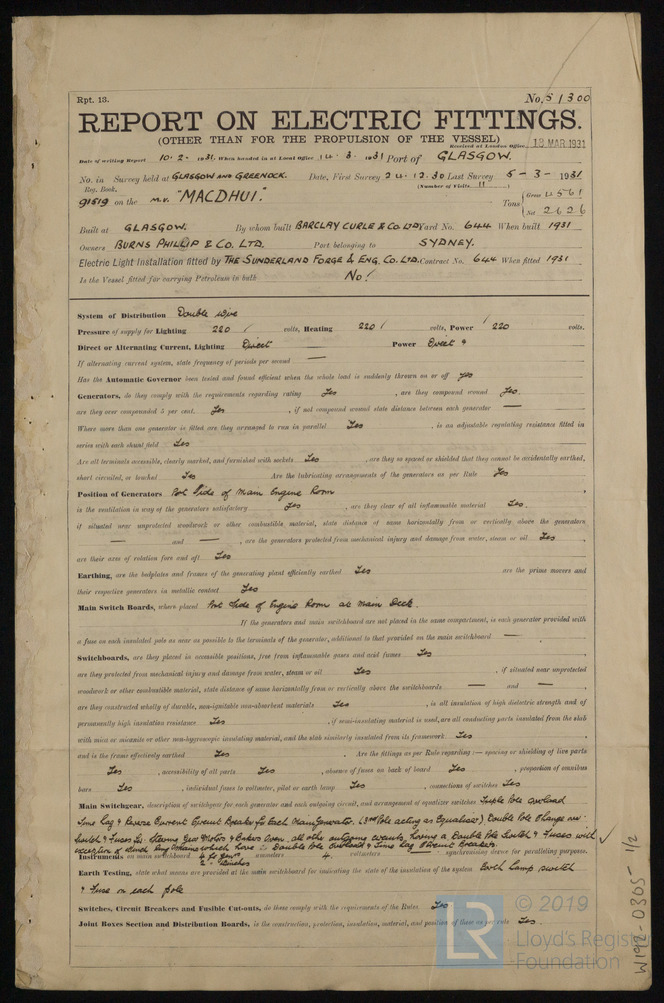 Rpt. 13.
No. 51300
REPORT ON ELECTRIC FITTINGS.
(OTHER THAN FOR THE PROPULSION OF THE VESSEL)
Received at London Office 18 MAR 1931
Date of writing Report 10. 2. 1931. When handed in at Local Office 14. 3. 1931 Port of GLASGOW.
No. in Survey held at GLASGOW AND GREENOCK. Date, First Survey 24.12.30 Last Survey 5-3-1931
Reg. Book. (Number of Visits 11)
91519 on the M.V. "MACDHUI." Tons Gross 4561
Net 2626
Built at GLASGOW. By whom built BARCLAY CURLE & Co. LTD Yard No. 644 When built 1931
Owners BURNS PHILLIP & CO. LTD. Port belonging to SYDNEY.
Electric Light Installation fitted by THE SUNDERLAND FORGE & ENG. CO. LTD. Contract No. 644 When fitted 1931
Is the Vessel fitted for carrying Petroleum in bulk No.
System of Distribution Double wire
Pressure of supply for Lighting 220 volts, Heating 220 volts, Power 220 volts.
Direct or Alternating Current, Lighting Direct Power Direct
If alternating current system, state frequency of periods per second —
Has the Automatic Governor been tested and found efficient when the whole load is suddenly thrown on or off yes
Generators, do they comply with the requirements regarding rating Yes, are they compound wound Yes.
are they over compounded 5 per cent. Yes, if not compound wound state distance between each generator —
Where more than one generator is fitted are they arranged to run in parallel Yes, is an adjustable regulating resistance fitted in
series with each shunt field Yes
Are all terminals accessible, clearly marked, and furnished with sockets Yes, are they so spaced or shielded that they cannot be accidentally earthed,
short circuited, or touched Yes Are the lubricating arrangements of the generators as per Rule Yes
Position of Generators Port Side of Main Engine Room
is the ventilation in way of the generators satisfactory Yes, are they clear of all inflammable material Yes.
if situated near unprotected woodwork or other combustible material, state distance of same horizontally from or vertically above the generators
— and —, are the generators protected from mechanical injury and damage from water, steam or oil Yes
are their axes of rotation fore and aft Yes
Earthing, are the bedplates and frames of the generating plant efficiently earthed Yes are the prime movers and
their respective generators in metallic contact Yes
Main Switch Boards, where placed Port Side of Engine Room at Main Deck.
If the generators and main switchboard are not placed in the same compartment, is each generator provided with
a fuse on each insulated pole as near as possible to the terminals of the generator, additional to that provided on the main switchboard —
Switchboards, are they placed in accessible positions, free from inflammable gases and acid fumes Yes
are they protected from mechanical injury and damage from water, steam or oil Yes, if situated near unprotected
woodwork or other combustible material, state distance of same horizontally from or vertically above the switchboards — and —
are they constructed wholly of durable, non-ignitable non-absorbent materials Yes, is all insulation of high dielectric strength and of
permanently high insulation resistance Yes, if semi-insulating material is used, are all conducting parts insulated from the slab
with mica or micanite or other non-hygroscopic insulating material, and the slab similarly insulated from its framework Yes
and is the frame effectively earthed Yes. Are the fittings as per Rule regarding:— spacing or shielding of live parts
Yes, accessibility of all parts Yes, absence of fuses on back of board Yes, proportion of omnibus
bars Yes, individual fuses to voltmeter, pilot or earth lamp Yes, connections of switches Yes
Main Switchgear, description of switchgear for each generator and each outgoing circuit, and arrangement of equalizer switches Triple Pole overload
Time Lag & Reverse Current Circuit Breaker for Each Main Generator (3rd Pole acting as Equaliser) Double Pole Change over
Switch & Fuses for Steering Gear Motors & Bakers Oven, all other outgoing circuits having a Double Pole Switch & Fuses with
exception of which have Double Pole Overload & Time Lag Circuit Breakers.
Instruments on main switchboard 4 for Genrs ammeters 4. voltmeters — synchronising device for paralleling purposes.
2 - Winches
Earth Testing, state what means are provided at the main switchboard for indicating the state of the insulation of the system Earth Lamp switch
& Fuse on each pole
Switches, Circuit Breakers and Fusible Cut-outs, do these comply with the requirements of the Rules Yes
Joint Boxes Section and Distribution Boards, is the construction, protection, insulation, material, and position of these as per rule Yes.
W192-0305 1/2
LR
© 2019
Lloyd's Register
Foundation